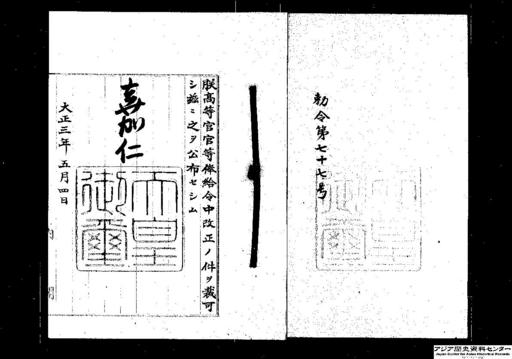 勅令第七十七号
朕高等官官等俸給令中改正ノ件ヲ裁可
シ茲ニ之ヲ公布セシム
嘉仁
天皇御璽
大正三年五月四日
内閣
アジア歴史資料センター
Japan Center for Asian Historical Records